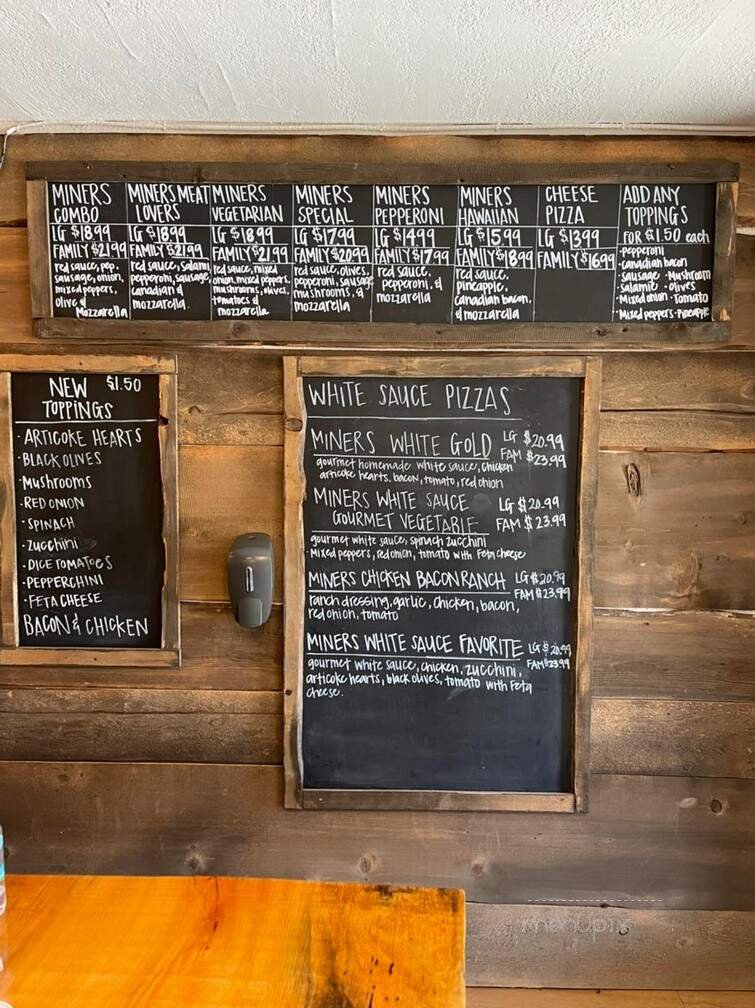 MINERS
COMBO
LG $18.99
FAMILY $21.99
red sauce, pep.
sausage, onion,
mixed peppers,
olive &
Mozzarella
MINERS MEAT
LOVERS
LG $18.99
FAMILY $21.99
red sauce, salami
pepperoni, sausage,
canadian &
mozzarella
MINERS
VEGETARIAN
LG $18.99
FAMILY $21.99
red sauce, mixed
onion, mixed peppers,
mushrooms, olives,
tomatoes &
mozzarella
MINERS
SPECIAL
LG $17.99
FAMILY $20.99
red sauce, olives,
pepperoni, sausage
mushrooms, &
mozzarella
MINERS
PEPPERONI
LG $14.99
FAMILY $17.99
red sauce,
pepperoni, &
mozzarella
MINERS
HAWAIIAN
LG $15.99
FAMILY $18.99
red sauce,
pineapple,
canadian bacon,
& mozzarella
CHEESE
PIZZA
LG $13.99
FAMILY $16.99
ADD ANY
TOPPINGS
FOR $1.50 each
·pepperoni
·canadian bacon
·sausage ·Mushroom
·salamie ·olives
·Mixed onion ·Tomato
·Mixed peppers ·Pineapple
NEW $1.50
TOPPINGS
·ARTICOKE HEARTS
·BLACK OLIVES
·Mushrooms
·RED ONION
·SPINACH
·Zucchini
·DICE TOMATOES
·PEPPERCHINI
·FETA CHEESE
BACON & CHICKEN
WHITE SAUCE PIZZAS
MINERS WHITE GOLD LG $20.99
FAM $23.99
gourmet homemade white sauce, chicken
articoke hearts, bacon, tomato, red onion
MINERS WHITE SAUCE LG $20.99
GOURMET VEGETABLE FAM $23.99
gourmet white sauce, spinach zucchini
·Mixed peppers, red onion, tomato with Feta cheese
MINERS CHICKEN BACON RANCH LG $20.99
FAM $23.99
ranch dressing, garlic, chicken, bacon,
red onion, tomato
MINERS WHITE SAUCE FAVORITE LG $20.99
FAM $23.99
gourmet white sauce, chicken, zucchini,
articoke hearts, black olives, tomato with Feta
cheese.
menupix